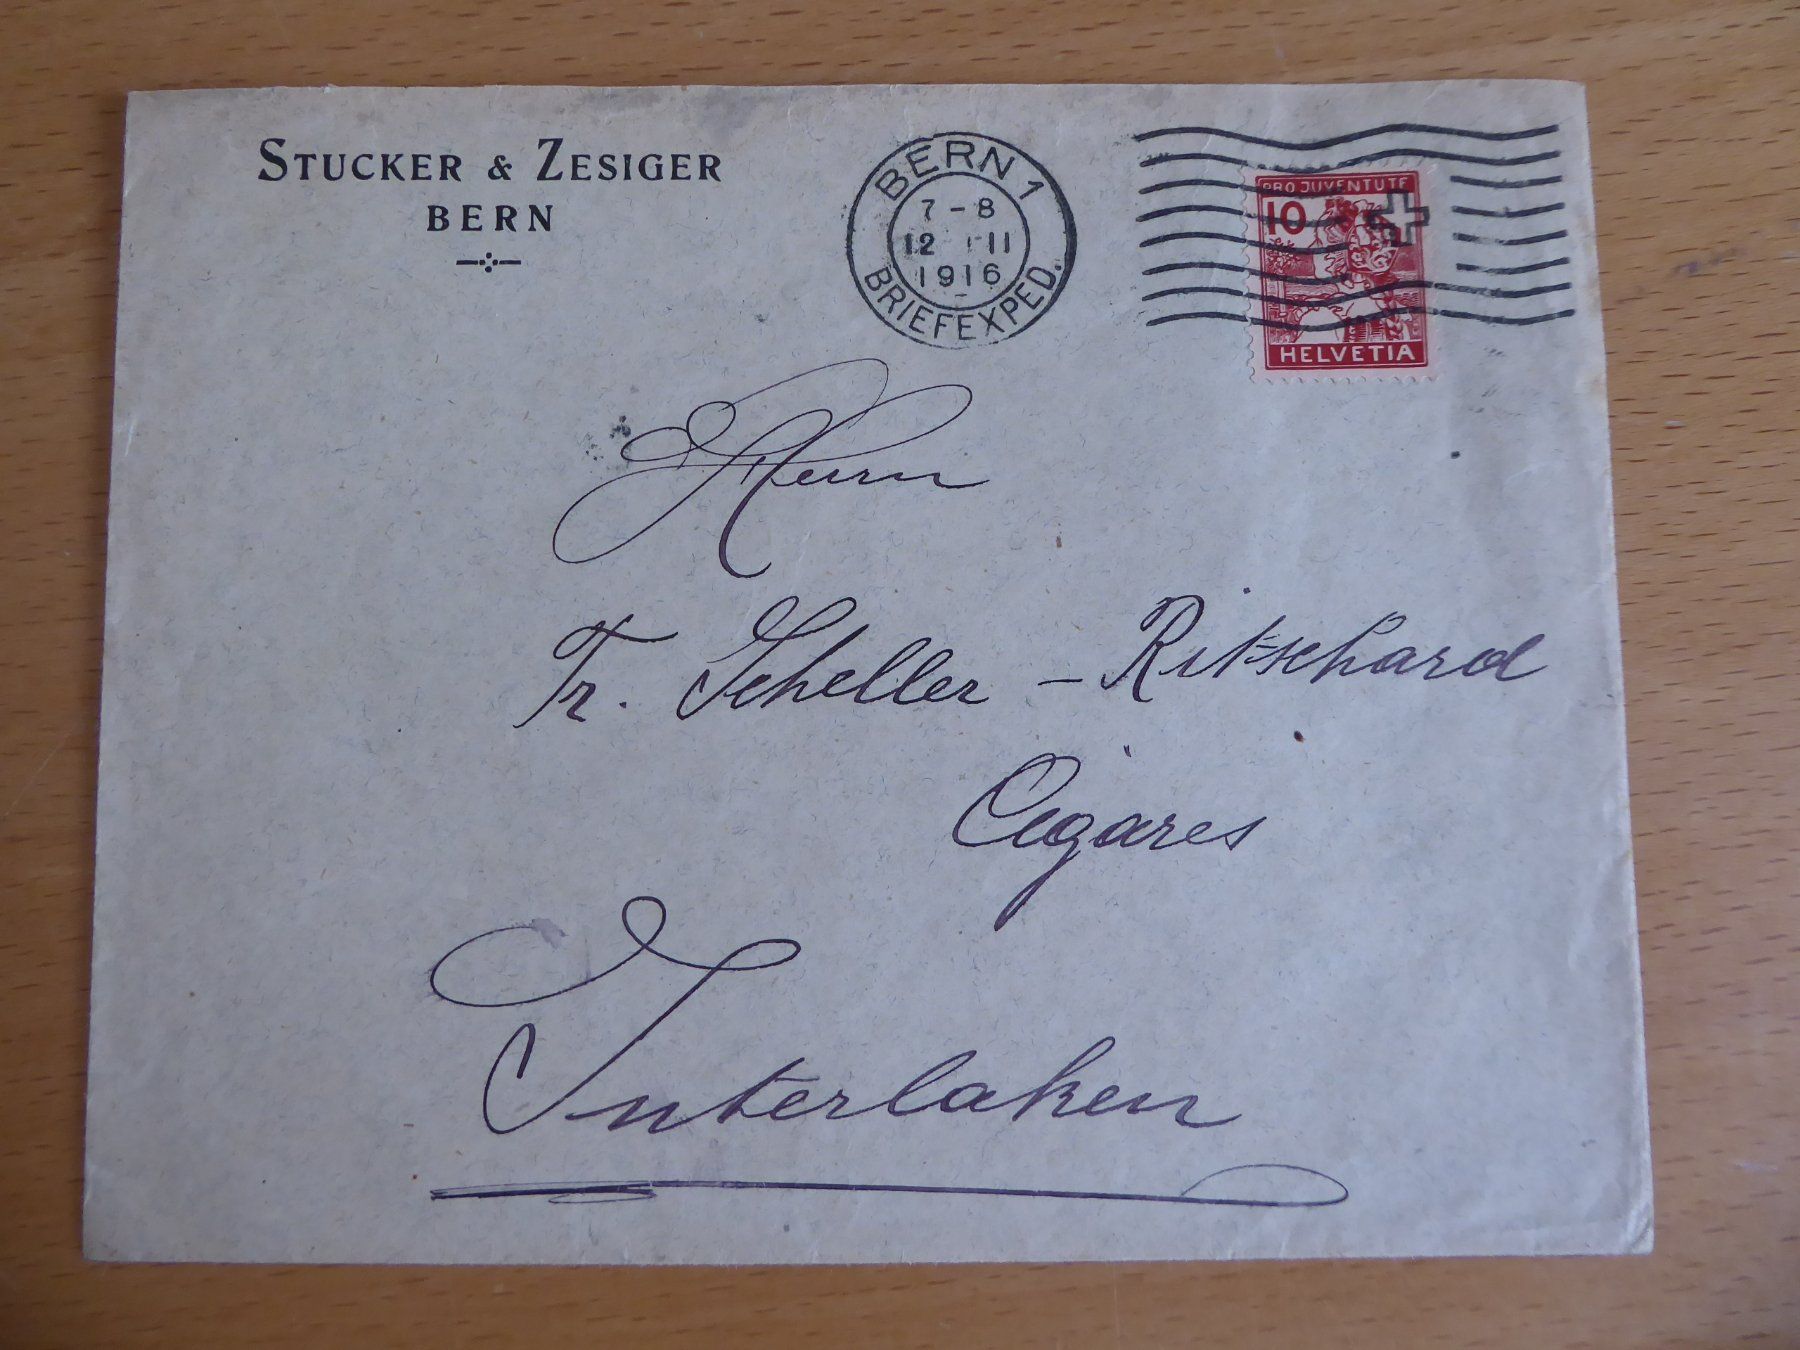 STUCKER & ZESIGER
BERN
BERN 1
7-8
12 III
1916
BRIEFEXPED.
PRO JUVENTUTE
10
HELVETIA
Herrn
Fr. Scheller-Ritschard
Cigares
Interlaken